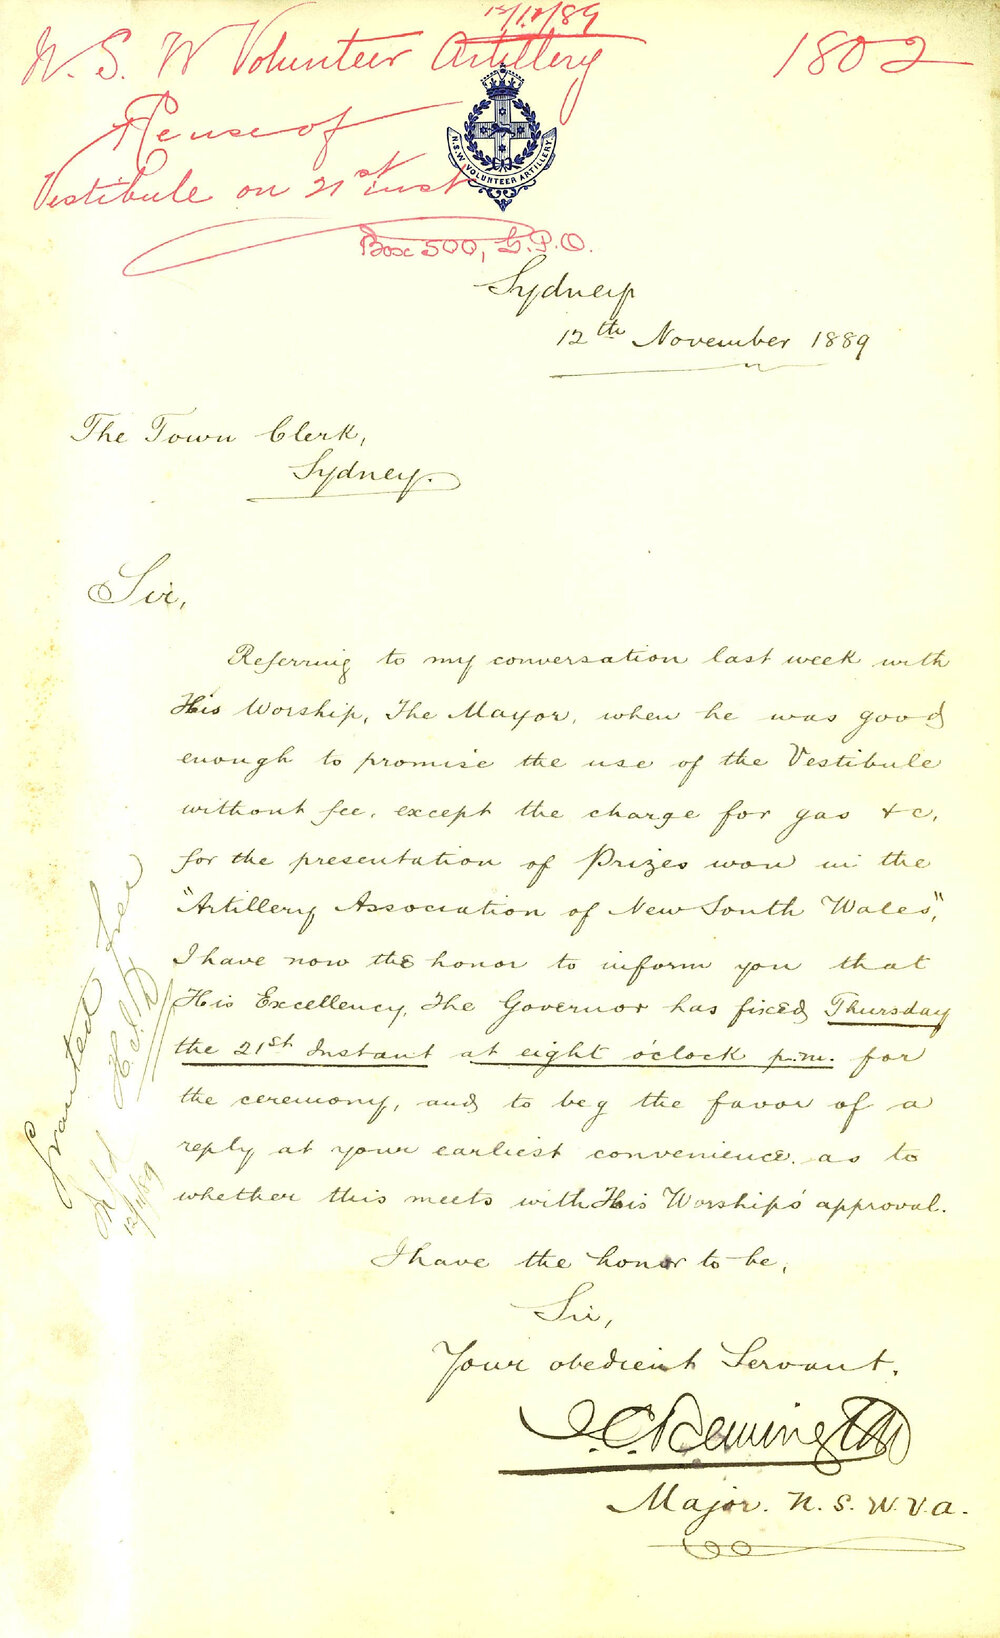 12/12/89
N. S. W Volunteer Artillery
1802
Re use of
Vestibule on 21st inst
N.S.W. VOLUNTEER ARTILLERY.
Box 500, G.P.O.
Sydney
12th November 1889
The Town Clerk,
Sydney.
Sir,
Referring to my conversation last week with
His Worship, The Mayor, when he was good
enough to promise the use of the Vestibule
without fee, except the charge for gas &c,
for the presentation of Prizes won in the
"Artillery Association of New South Wales",
I have now the honor to inform you that
His Excellency, The Governor has fixed Thursday
the 21st Instant at eight o'clock p.m. for
the ceremony, and to beg the favor of a
reply at your earliest convenience, as to
whether this meets with His Worship's approval.
I have the honor to be,
Sir,
Your obedient Servant,
Major. N. S. W. V. A.
Granted free
12/11/89